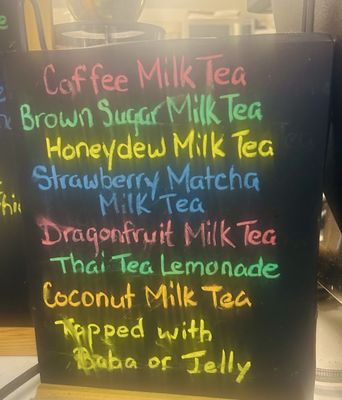 Coffee Milk Tea
Brown Sugar Milk Tea
Honeydew Milk Tea
Strawberry Matcha
Milk Tea
Dragonfruit Milk Tea
Thai Tea Lemonade
Coconut Milk Tea
Topped with
Baba or Jelly